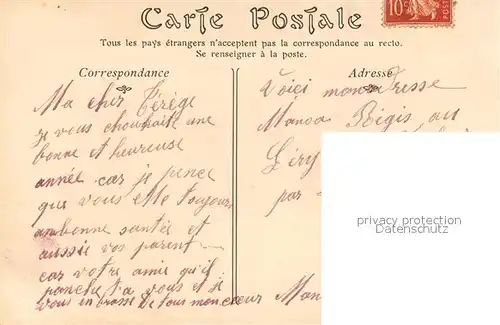 Carte Postale
10c
POSTES
Tous les pays étrangers n'acceptent pas la correspondance au recto.
Se renseigner à la poste.
Correspondance
Adresse
Ma cher Térège
je vous chouhaite une
bonne et heureuse
année car je pence
que vous ette toujour
anbonne santée et
aussie vos parent
car votre amie qu'il
panche ta vous et je
vous enbrasse de tous mon cœur
Voici mon adresse
Manoa Régis au
Léry
par
Man
privacy protection
Datenschutz